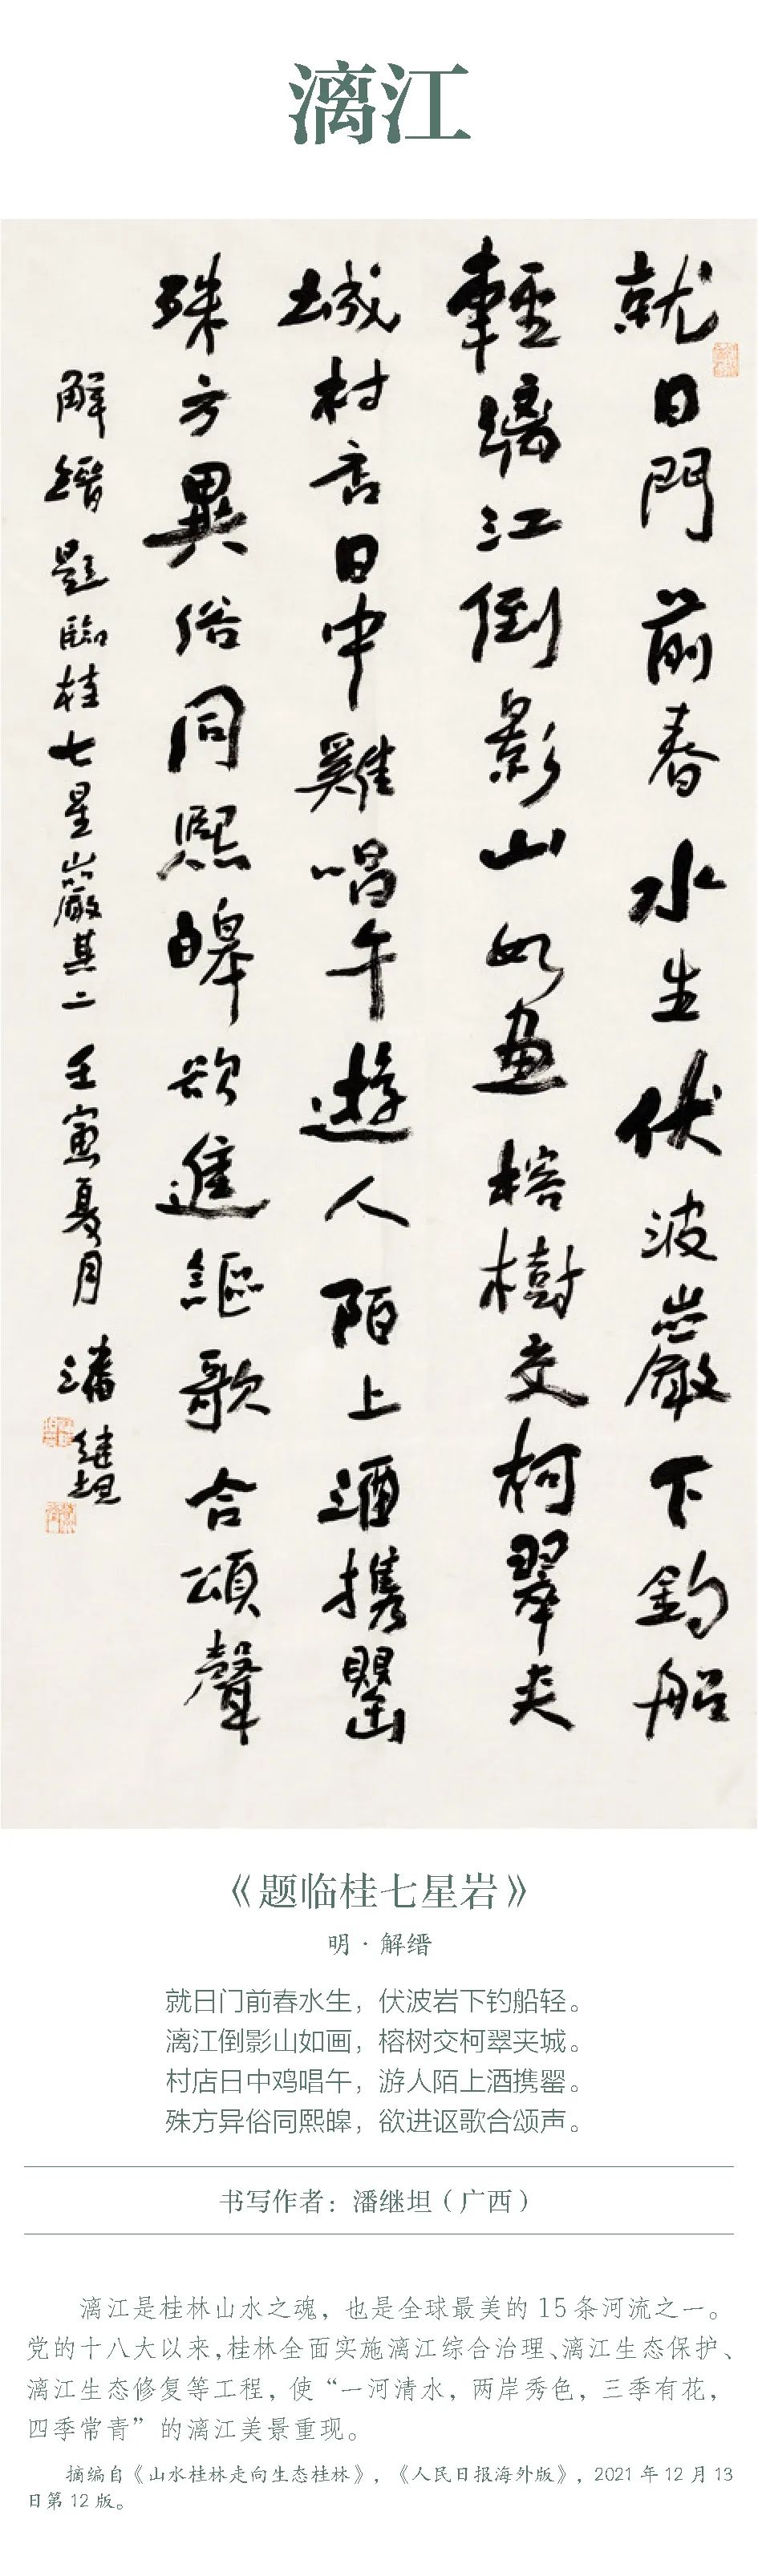 漓江
就日門前春水生伏波巖下釣船
輕漓江倒影山如畫榕樹交柯翠夾
城村店日中雞唱午遊人陌上酒携罌
殊方異俗同熙皞欲進謳歌合頌聲
解縉題臨桂七星巖其二 壬寅夏月 潘继坦
《题临桂七星岩》
明·解缙
就日门前春水生，伏波岩下钓船轻。
漓江倒影山如画，榕树交柯翠夹城。
村店日中鸡唱午，游人陌上酒携罂。
殊方异俗同熙皞，欲进讴歌合颂声。
书写作者：潘继坦（广西）
漓江是桂林山水之魂，也是全球最美的 15 条河流之一。
党的十八大以来，桂林全面实施漓江综合治理、漓江生态保护、
漓江生态修复等工程，使“一河清水，两岸秀色，三季有花，
四季常青”的漓江美景重现。
摘编自《山水桂林走向生态桂林》，《人民日报海外版》，2021 年 12 月 13
日第 12 版。